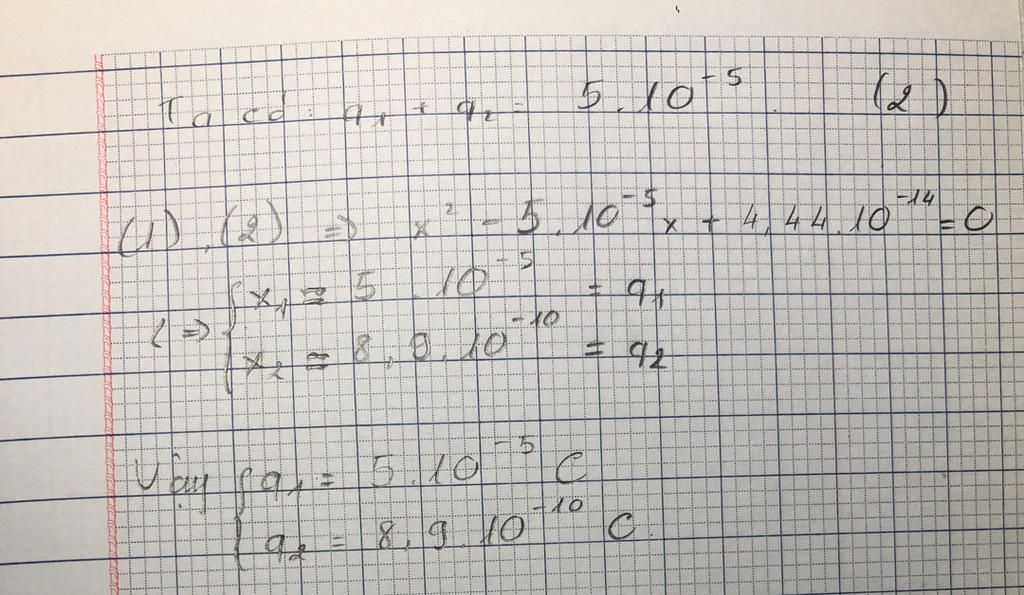 Ta có: q₁ + q₂ = 5.10⁻⁵. (2)
(1), (2) => x² - 5.10⁻⁵x + 4,44.10⁻¹⁴ = 0
<=> { x₁ ≈ 5.10⁻⁵ = q₁
x₂ ≈ 8,9.10⁻¹⁰ = q₂
Vậy { q₁ = 5.10⁻⁵ C
q₂ = 8,9.10⁻¹⁰ C.